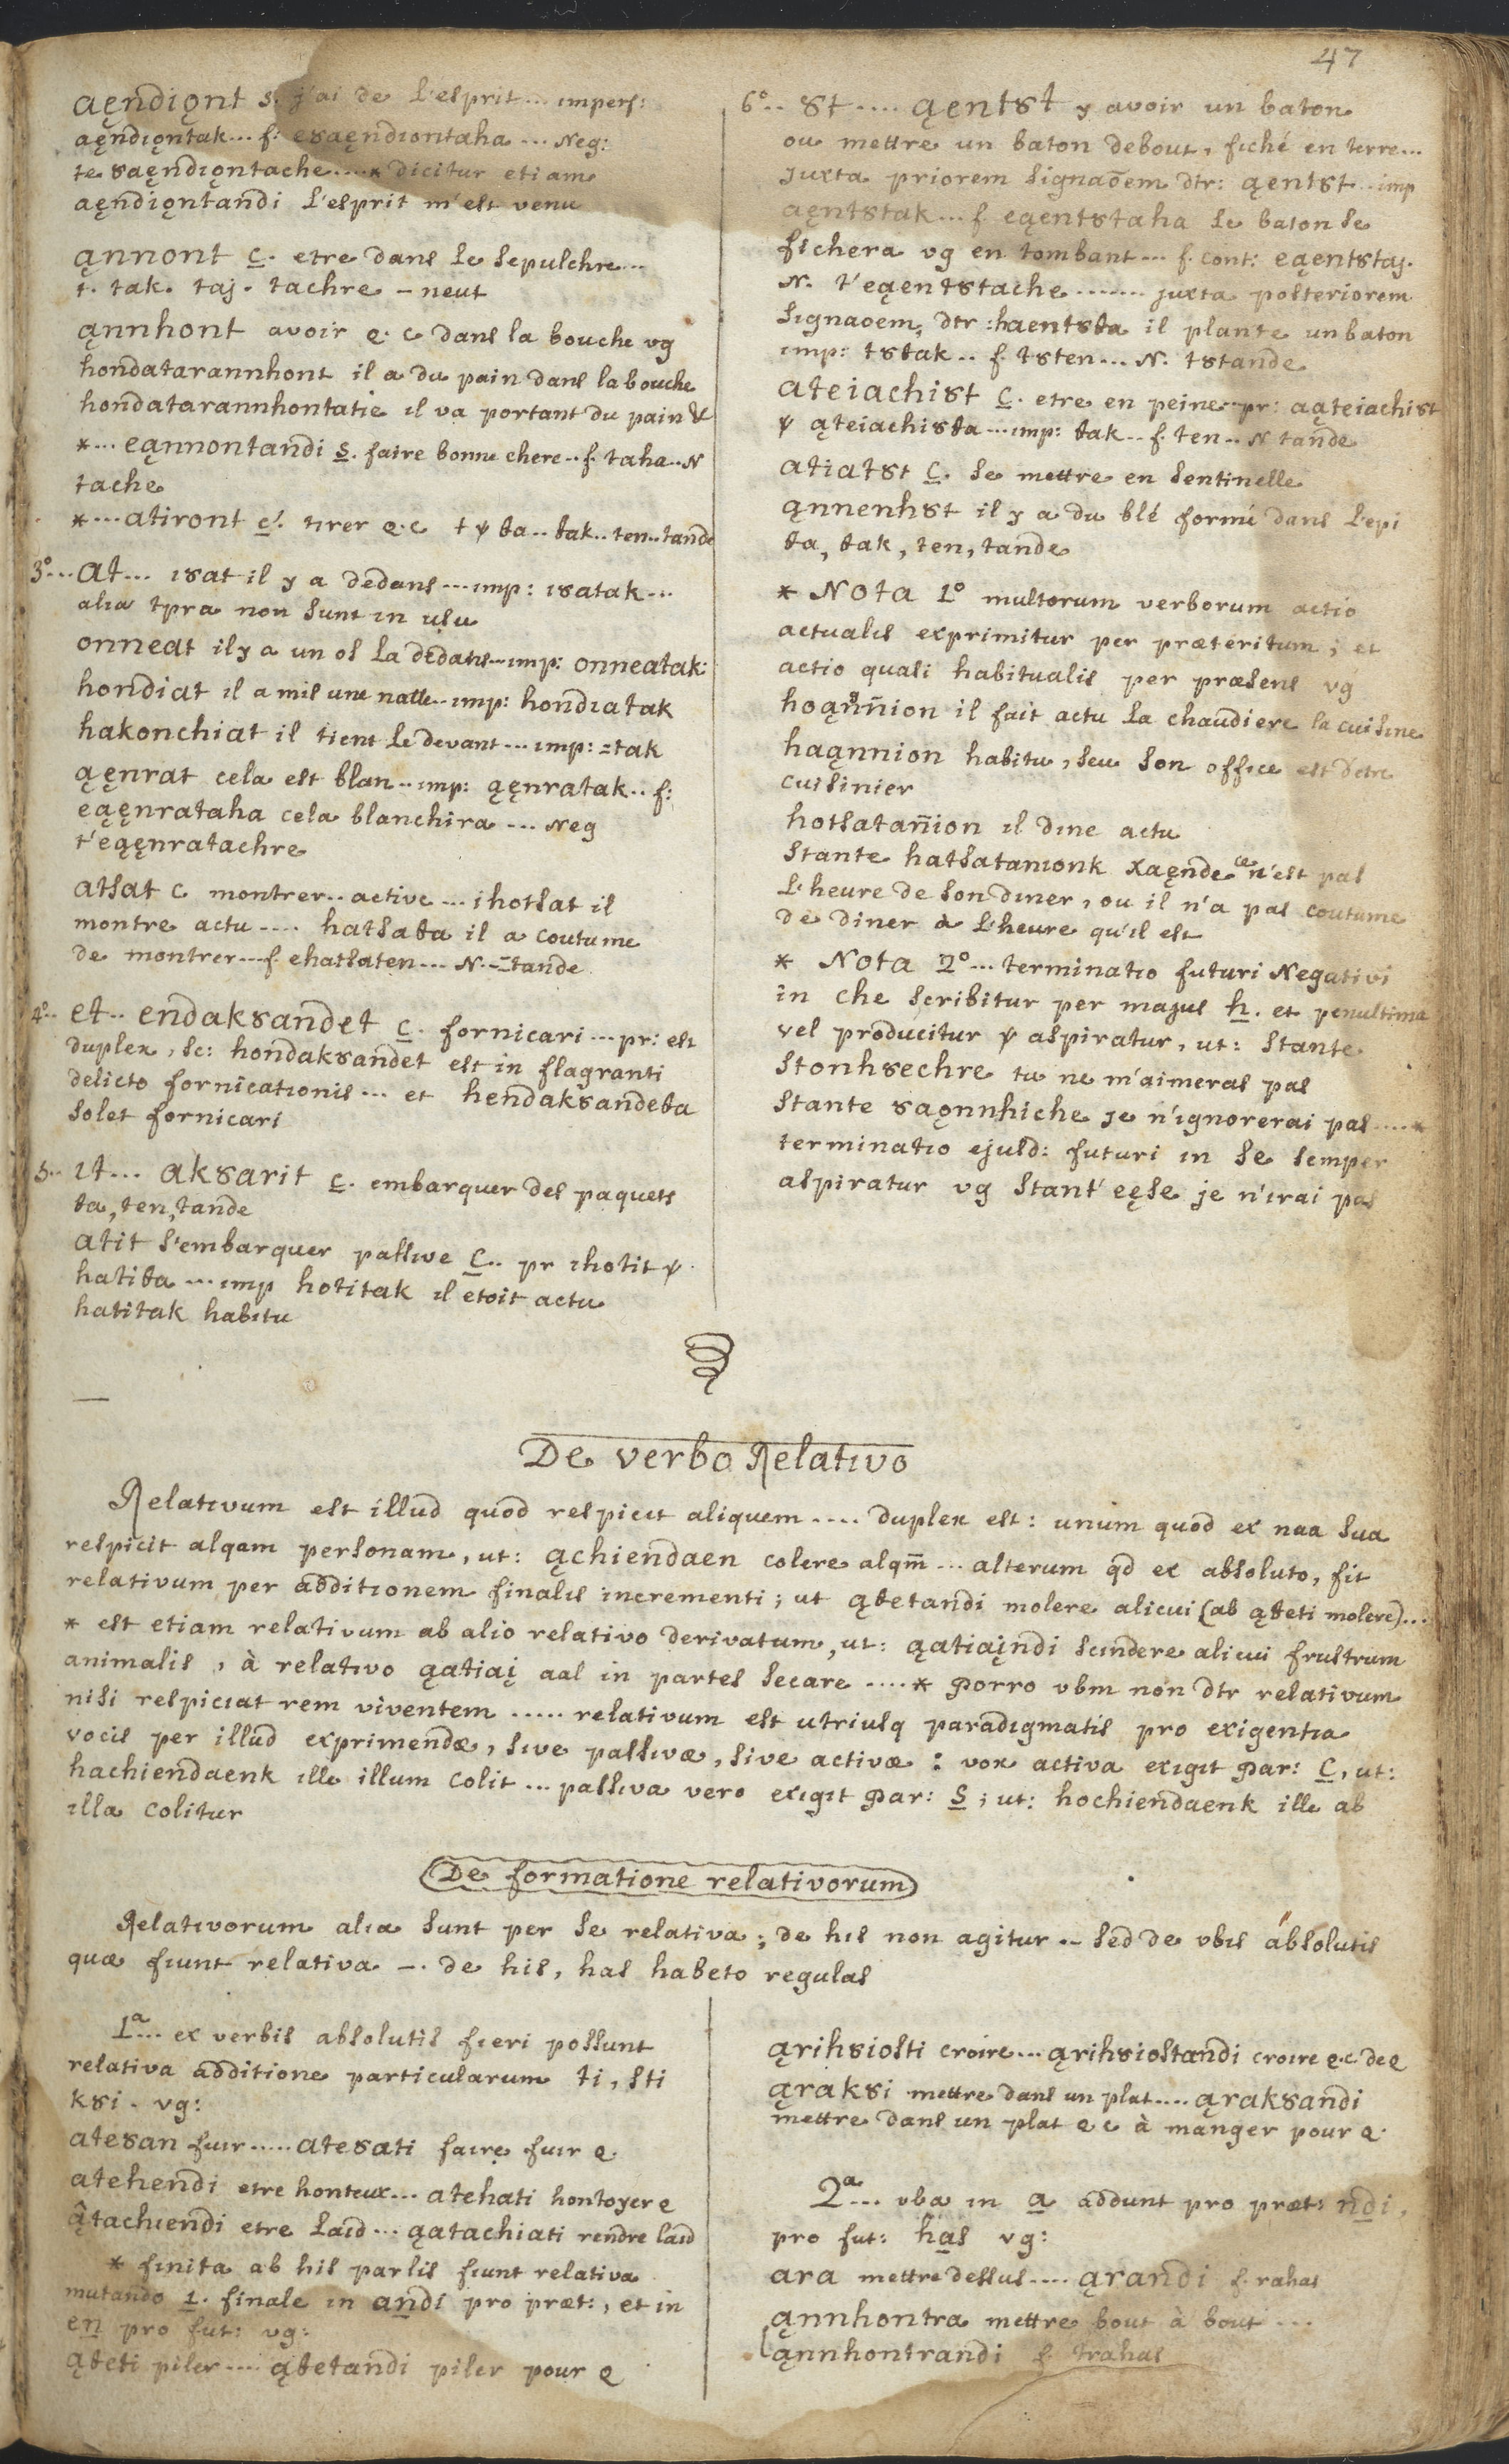 47
aęndiǫnt s. j'ai de l'esprit... impers:
aęndiǫntak... f: esaęndiontaha ... Neg:
te saęndiǫntache....* dicitur etiam
aęndiǫntandi l'esprit m'est venu
ąnnont c. etre dans le sepulchre...
t. tak. taj. tachre – neut
ąnnhont avoir q. c dans la bouche vg
hondatarannhont il a du pain dans la bouche
hondatarannhontatie il va portant du pain &
*... eąnnontandi s. faire bonne chere.. f. taha.. N
tache
*...atiront c. tirer q.c t ψ ŧa.. ŧak.. ten.. tande
3°... at... isat il y a dedans ... imp: isatak...
alia tpra non sunt in usu
onneat il y a un os la dedans... imp: onneatak:
hondiat il a mis une natte.. imp: hondiatak
hakonchiat il tient le devant ... imp: =tak
ąęnrat cela est blan.. imp: ąęnratak.. f:
eąęnrataha cela blanchira ... Neg
t'eąęnratachre
atsat c montrer.. active ... ihotsat il
montre actu .... hatsaŧa il a coutume
de montrer...f. ehatsaten... N.-=tande
4°.. et.. endaksandet c. fornicari ... pr: est
duplex, sc: hondaksandet est in flagranti
delicto fornicationis ... et hendaksandeŧa
solet fornicari
5.. it... aksarit c. embarquer des paquets
ŧa, ten, tande
atit s'embarquer passive c.. pr ihotit ψ
hatiŧa ... imp hotitak il etoit actu
hatitak habitu
6°.. st .... ąentst y avoir un baton
ou mettre un baton debout, fiché en terre...
juxta priorem signaõem dtr: ąentst.. imp
ąęntstak ... f. eąentstaha le baton se
fichera vg en tombant ... f. cont: eąentstaj.
N. t'eąentstache ........ juxta posteriorem
signaoem, dtr: haentsŧa il plante un baton
imp: tsŧak.. f. tsten... N. tstande
ateiachist c. etre en peine.. pr: aąteiachist
ψ ąteiachisŧa ... imp: ŧak.. f. ten.. N tande
atiatst c. se mettre en sentinelle
ąnnenhst il y a du blé formé dans l'epi
ŧa, ŧak, ten, tande
* Nota 1° multorum verborum actio
actualis exprimitur per præteritum; et
actio quasi habitualis per præsens vg
hoąnñion il fait actu la chaudiere la cuisine
haąnnion habitu, seu son office est detre
cuisinier
hotsatañion il dine actu
stante hatsatanionk xaęnde ce n'est pas
l'heure de son diner, ou il n'a pas coutume
de diner a l'heure qu'il est
* Nota 2°... terminatio futuri Negativi
in che scribitur per majus h. et penultima
vel producitur ψ aspiratur, ut: stante
stonhsechre tu ne m'aimeras pas
stante saǫnnhiche je n'ignorerai pas ....*
terminatio ejusd: futuri in se semper
aspiratur vg stant' eęse je n'irai pas
De verbo Relativo
Relativum est illud quod respicit aliquem .... duplex est: unum quod ex naa sua
respicit alqam personam, ut: ąchiendaen colere alqm̃ ... alterum qd ex absoluto, fit
relativum per additionem finalis incrementi; ut ąŧetandi molere alicui (ab ąŧeti molere)...
* est etiam relativum ab alio relativo derivatum, ut: ąatiaįndi scindere alicui frustrum
animalis, à relativo ąatiaį aal in partes secare ....* porro vbm non dtr relativum
nisi respiciat rem viventem ..... relativum est utriusq paradigmatis pro exigentia
vocis per illud exprimendæ, sive passivæ, sive activæ: vox activa exigit par: C, ut:
hachiendaenk ille illum colit ... passiva vero exigit par: S; ut: hochiendaenk ille ab
illa colitur
De formatione relativorum
Relativorum alia sunt per se relativa; de his non agitur .– sed de vbis absolutis
quæ fiunt relativa –. de his, has habeto regulas
1ª... ex verbis absolutis fieri possunt
relativa additione particularum ti, sti
ksi. vg:
atesan fuir ..... atesati faire fuir q.
atehendi etre honteux... atehati hontoyer q
ątachiendi etre laid ... ąatachiati rendre laid
* finita ab his parlis fiunt relativa
mutando i. finale in andi pro præt:, et in
en pro fut: vg:
ąŧeti piler .... ąŧetandi piler pour q
ąrihsiosti croire ... ąrihsiostandi croire q.c de q
ąraksi mettre dans un plat .... ąraksandi
mettre dans un plat q c à manger pour q.
2ª... vba in a addunt pro præt: ndi,
pro fut: has vg:
ara mettre dessus .... ąrandi f. rahas
ąnnhontra mettre bout à bout ...
ąnnhontrandi f. trahas